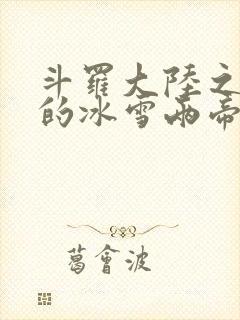 斗羅大陸之
的冰雪兩帝
葛會波